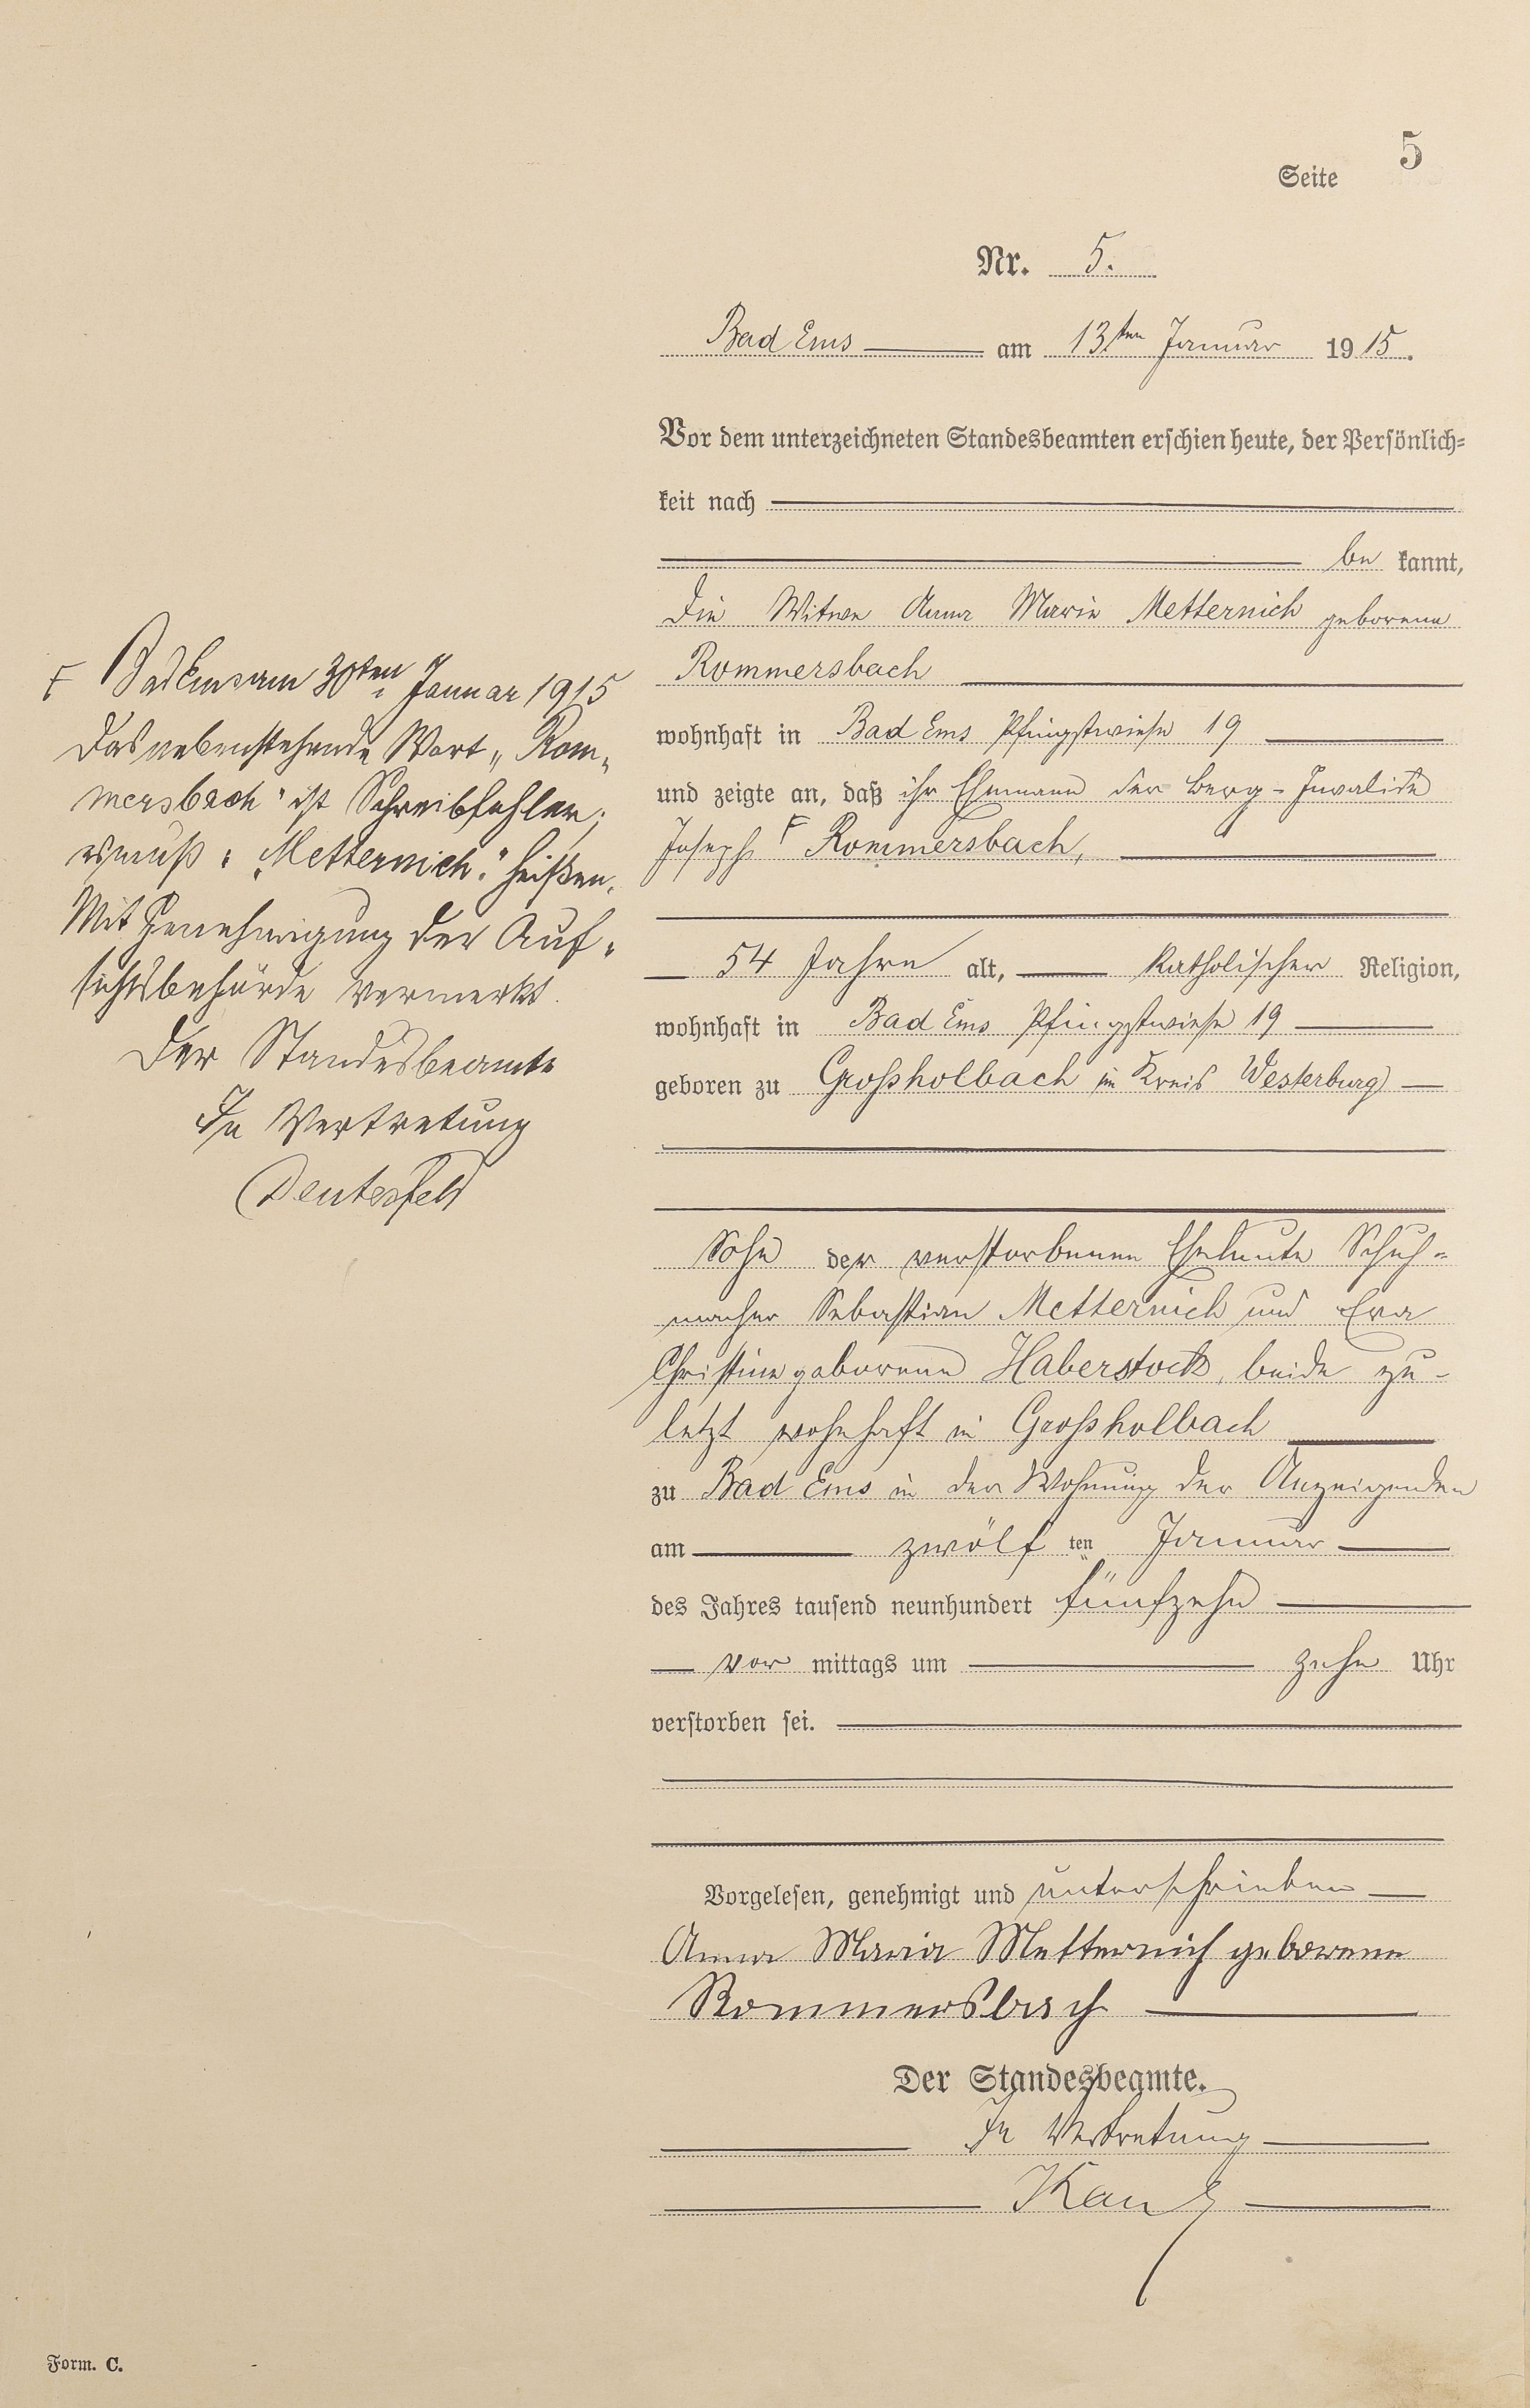 Seite 5
Nr. 5.
Bad Ems am 13ten Januar 1915.
Vor dem unterzeichneten Standesbeamten erschien heute, der Persönlich-
keit nach
be kannt,
die Witwe Anna Marie Metternich geborene
Rommersbach
wohnhaft in Bad Ems Pfingstwiese 19
und zeigte an, daß ihr Ehemann der Berg-Invalide
Joseph F Rommersbach,
54 Jahre alt, Katholischer Religion,
wohnhaft in Bad Ems Pfingstwiese 19
geboren zu Großholbach im Kreis Westerburg
Sohn der verstorbenen Eheleute Schuh-
macher Sebastian Metternich und Eva
Christine geborene Haberstock, beide zu-
letzt wohnhaft in Großholbach
zu Bad Ems in der Wohnung der Anzeigenden
am zwölf ten Januar
des Jahres tausend neunhundert fünfzehn
vor mittags um zehn Uhr
verstorben sei.
Vorgelesen, genehmigt und unterschrieben
Anna Maria Metternich geborene
Rommersbach
Der Standesbeamte.
In Vertretung
F Bad Ems am 30ten Januar 1915
Das nebenstehende Wort „Rom-
mersbach" ist Schreibfehler;
es muß „Metternich" heißen.
Mit Genehmigung der Auf-
sichtsbehörde vermerkt.
Der Standesbeamte
In Vertretung
Form. C.